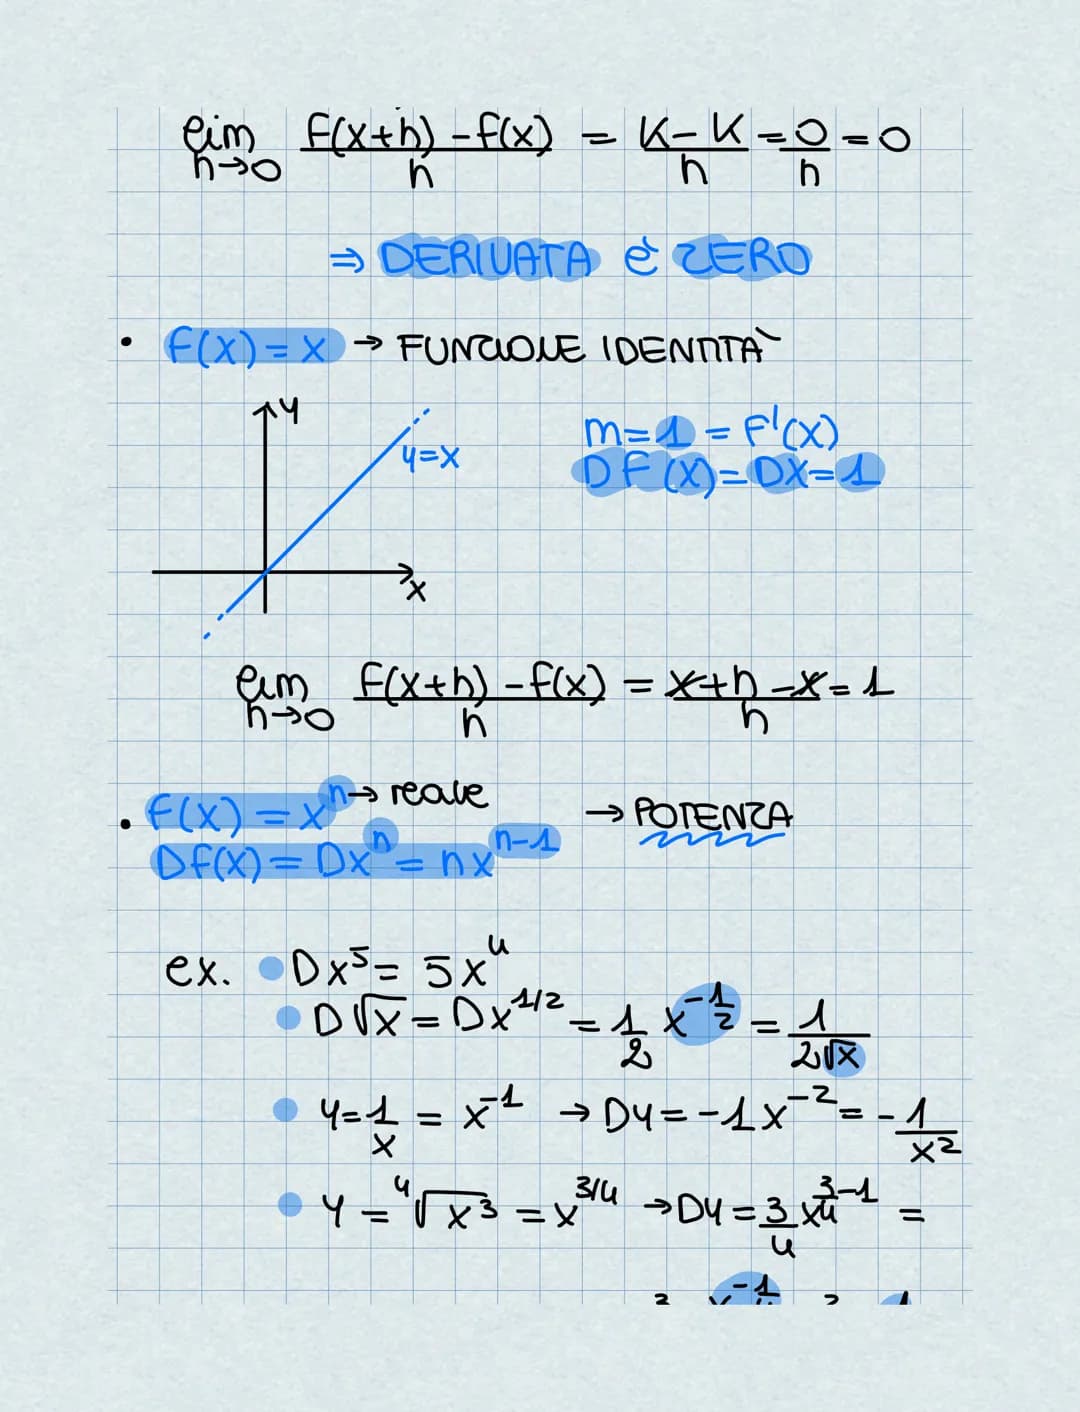 lim f(x+h) - f(x) = K - K = 0 = 0
h→0 h h h
⇒ DERIVATA è ZERO
• f(x) = x → FUNZIONE IDENTITÀ
y
y=x
m=1 = F'(x)
DF(x)=DX=1
x
lim f(x+h) - f(x) = x+h-x = 1
h→0 h h
• f(x) = xⁿ → reale → POTENZA
Df(x) = Dxⁿ = nxⁿ⁻¹
ex. • Dx⁵ = 5x⁴
• D√x = Dx^1/2 = 1/2 x^-1/2 = 1/2√x
• y=1/x = x⁻¹ → Dy = -1x⁻² = -1/x²
• y = ⁴√x³ = x^3/4 → Dy = 3/4 x^3/4-1 =